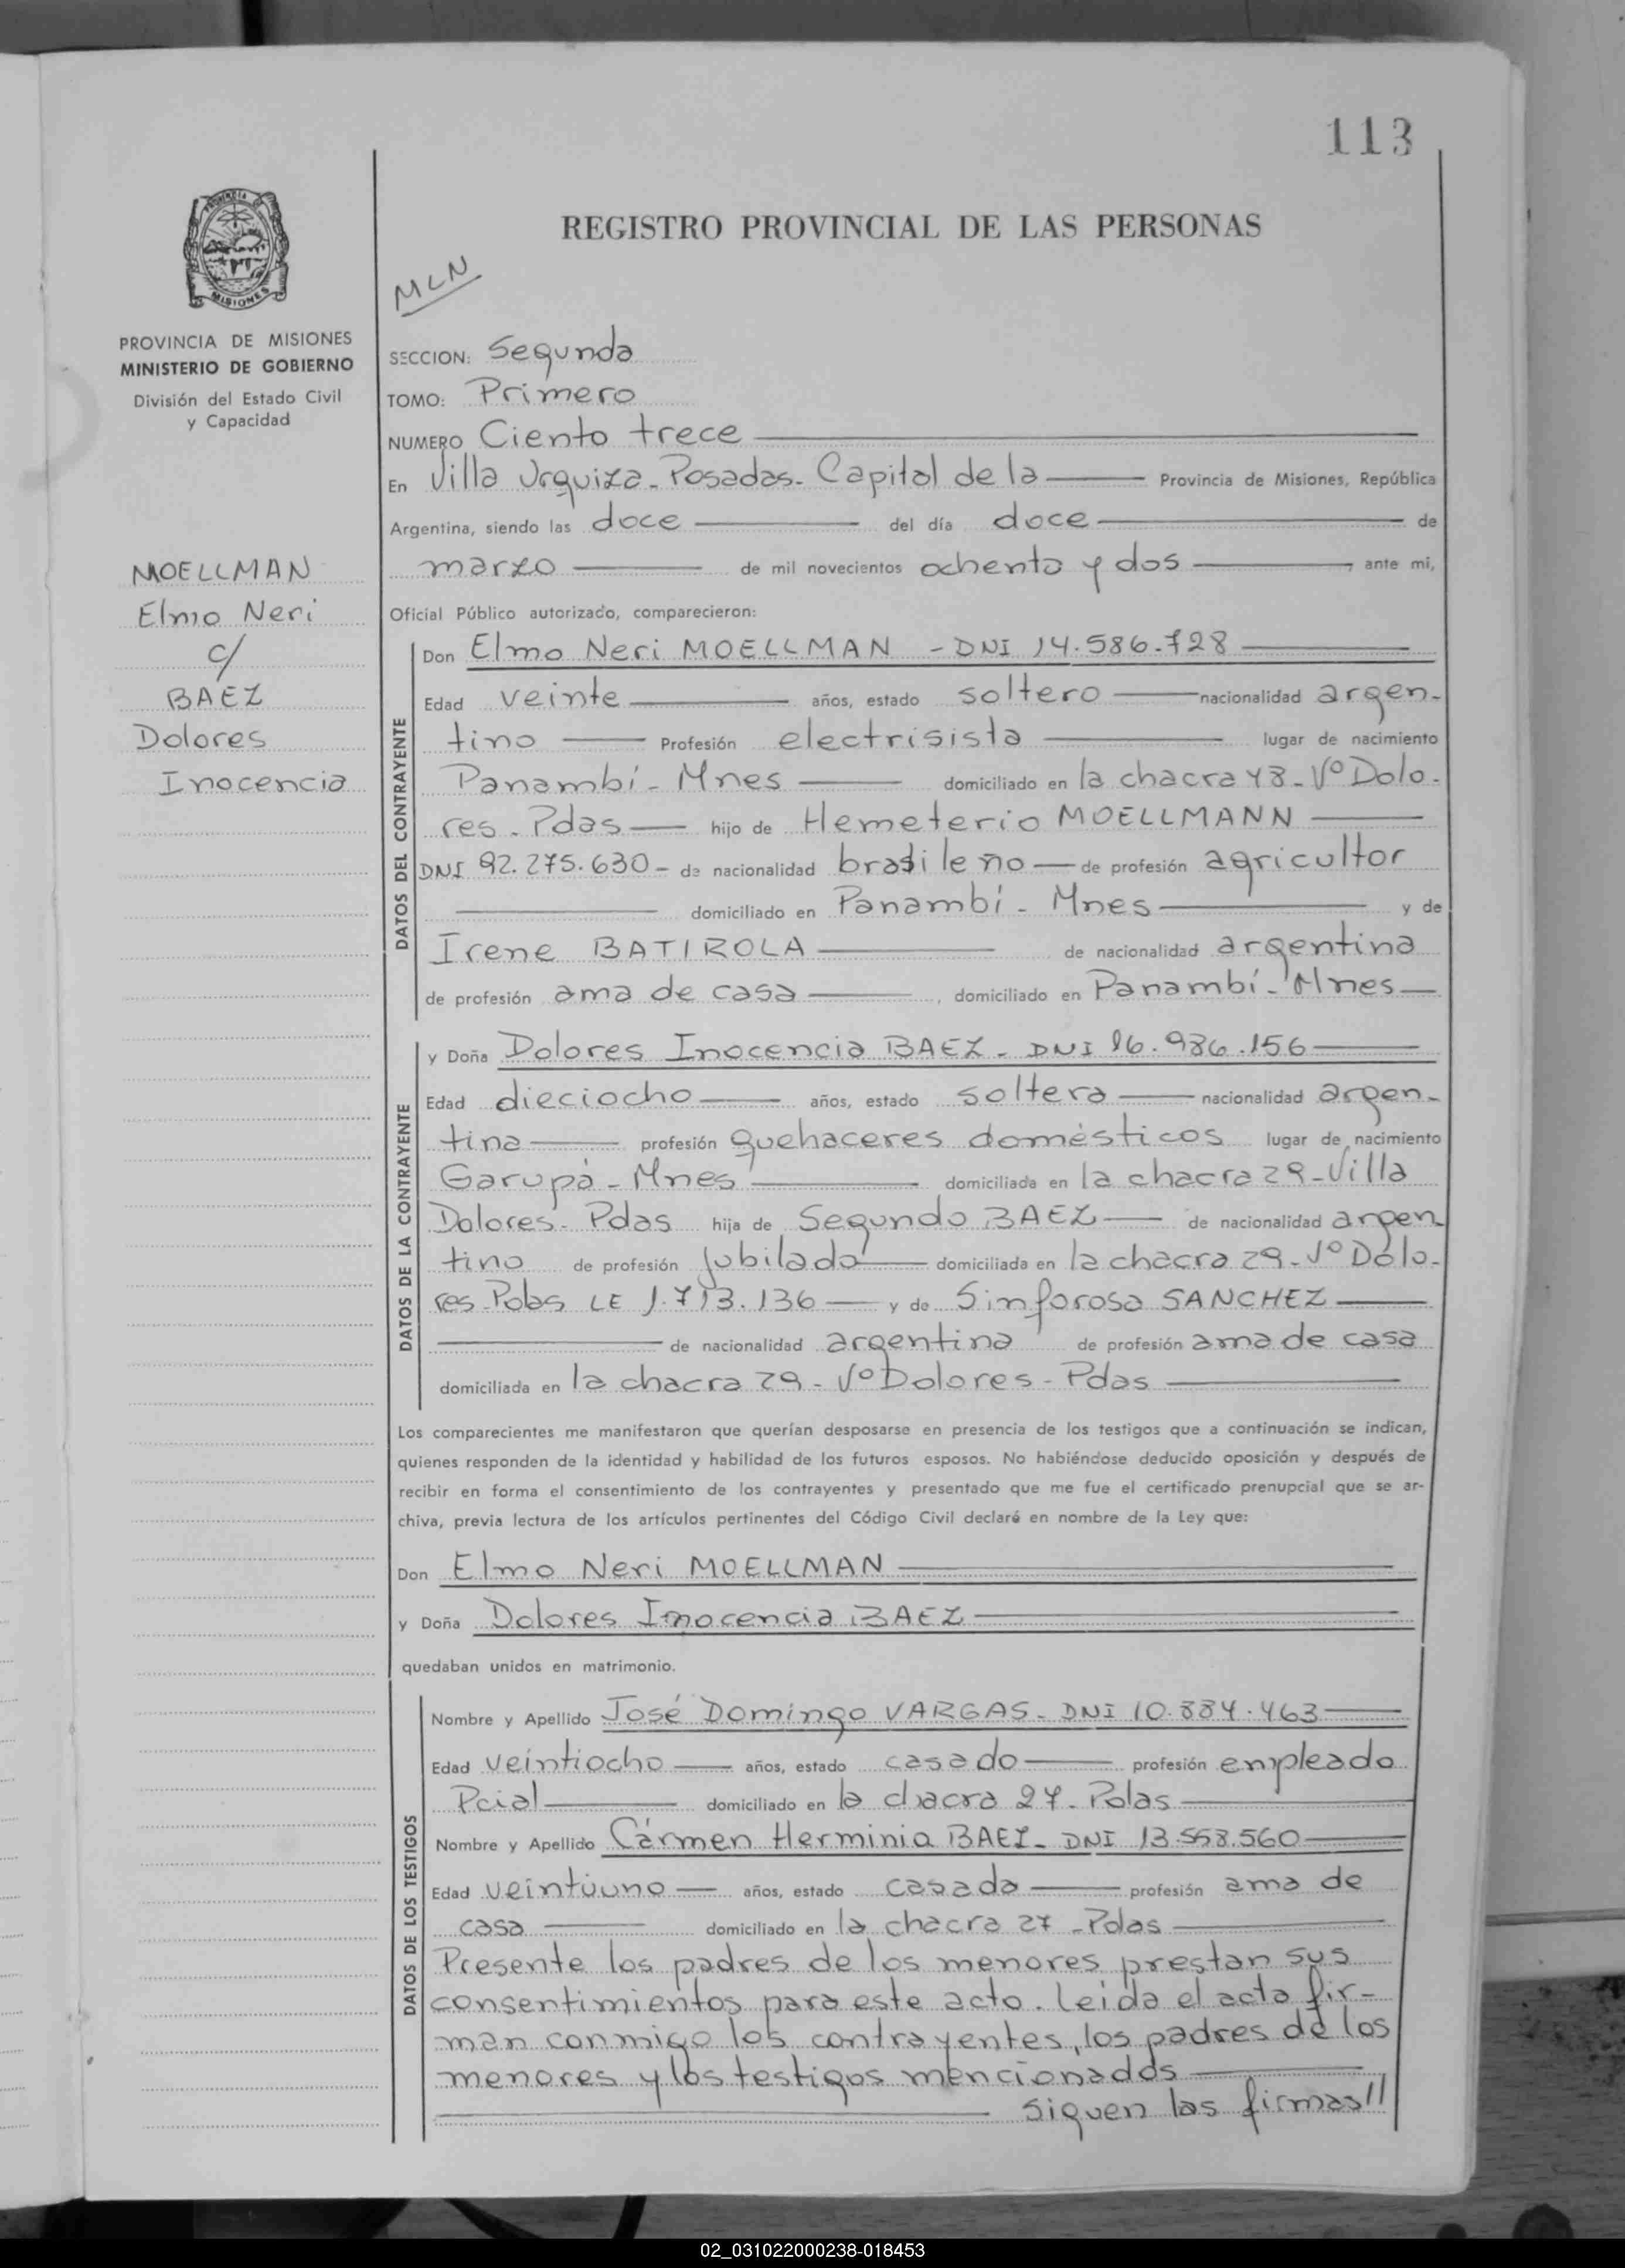 113
REGISTRO PROVINCIAL DE LAS PERSONAS
MLN
PROVINCIA DE MISIONES
MINISTERIO DE GOBIERNO
División del Estado Civil
y Capacidad
MOELLMAN
Elmo Neri
c/
BAEZ
Dolores
Inocencia
SECCION: Segunda
TOMO: Primero
NUMERO Ciento trece
En Villa Urquiza - Posadas - Capital de la Provincia de Misiones, República
Argentina, siendo las doce del día doce de
marzo de mil novecientos ochenta y dos, ante mi,
Oficial Público autorizado, comparecieron:
DATOS DEL CONTRAYENTE
Don Elmo Neri MOELLMAN - DNI 14.586.728
Edad veinte años, estado soltero nacionalidad argen-
tino Profesión electrisista lugar de nacimiento
Panambí - Mnes domiciliado en la chacra 48 - Vº Dolo-
res - Pdas hijo de Hemeterio MOELLMANN
DNI 92.275.630 - de nacionalidad brasileño de profesión agricultor
domiciliado en Panambí - Mnes y de
Irene BATIROLA de nacionalidad argentina
de profesión ama de casa, domiciliado en Panambí - Mnes
DATOS DE LA CONTRAYENTE
y Doña Dolores Inocencia BAEZ - DNI 16.986.156
Edad dieciocho años, estado soltera nacionalidad argen-
tina profesión quehaceres domésticos lugar de nacimiento
Garupá - Mnes domiciliada en la chacra 29 - Villa
Dolores - Pdas hija de Segundo BAEZ de nacionalidad argen
tino de profesión jubilado domiciliada en la chacra 29 - Vº Dolo-
res - Pdas LE 1.713.136 y de Sinforosa SANCHEZ
de nacionalidad argentina de profesión ama de casa
domiciliada en la chacra 29 - Vº Dolores - Pdas
Los comparecientes me manifestaron que querían desposarse en presencia de los testigos que a continuación se indican,
quienes responden de la identidad y habilidad de los futuros esposos. No habiéndose deducido oposición y después de
recibir en forma el consentimiento de los contrayentes y presentado que me fue el certificado prenupcial que se ar-
chiva, previa lectura de los artículos pertinentes del Código Civil declaré en nombre de la Ley que:
Don Elmo Neri MOELLMAN
y Doña Dolores Inocencia BAEZ
quedaban unidos en matrimonio.
DATOS DE LOS TESTIGOS
Nombre y Apellido José Domingo VARGAS - DNI 10.884.463
Edad veintiocho años, estado casado profesión empleado
Pcial domiciliado en la chacra 27 - Pdas
Nombre y Apellido Cármen Herminia BAEZ - DNI 13.558.560
Edad veintiuno años, estado casada profesión ama de
casa domiciliado en la chacra 27 - Pdas
Presente los padres de los menores prestan sus
consentimientos para este acto. Leida el acta fir-
man conmigo los contrayentes, los padres de los
menores y los testigos mencionados
siguen las firmas//
02_031022000238-018453